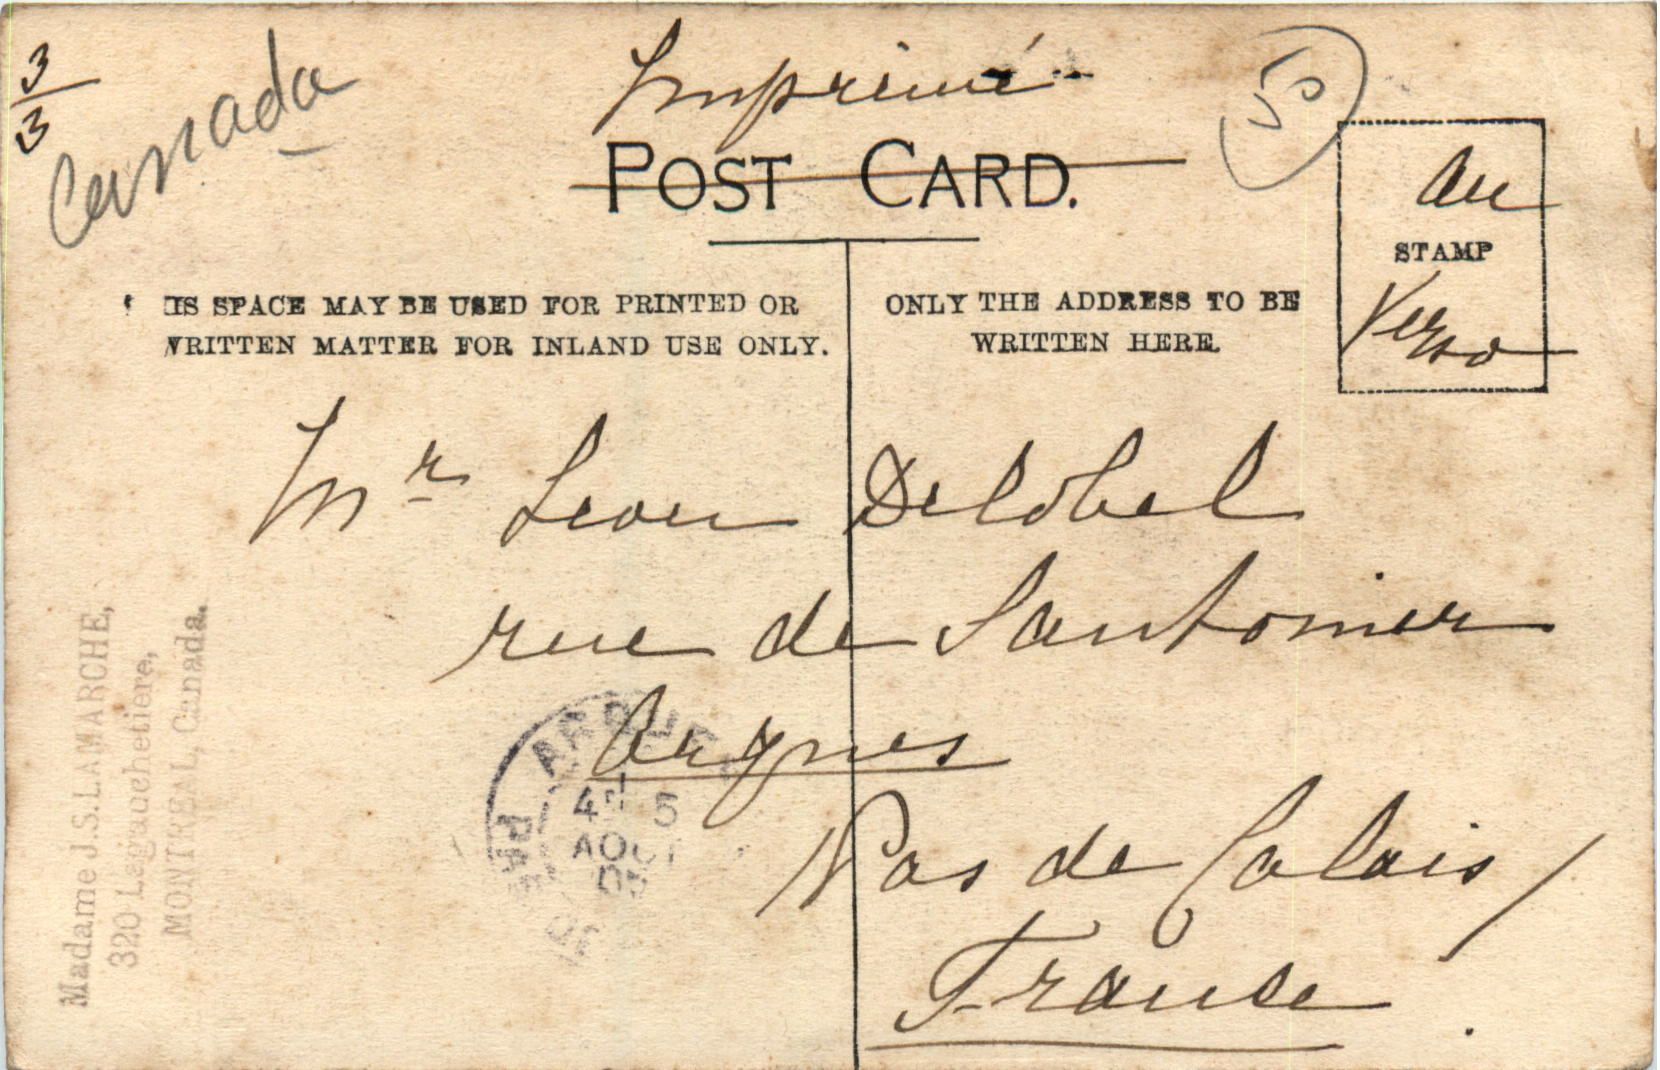 3
3
Canada
Imprimé
POST CARD.
Au
STAMP
Verso
IS SPACE MAY BE USED FOR PRINTED OR
WRITTEN MATTER FOR INLAND USE ONLY.
ONLY THE ADDRESS TO BE
WRITTEN HERE.
Mr Leon Delobel
rue de
Arques
Pas de Calais
France
ARQUES
4E 5
AOUT
05
Madame J.S. LAMARCHE,
320 Lagauchetiere,
MONTREAL, Canada.